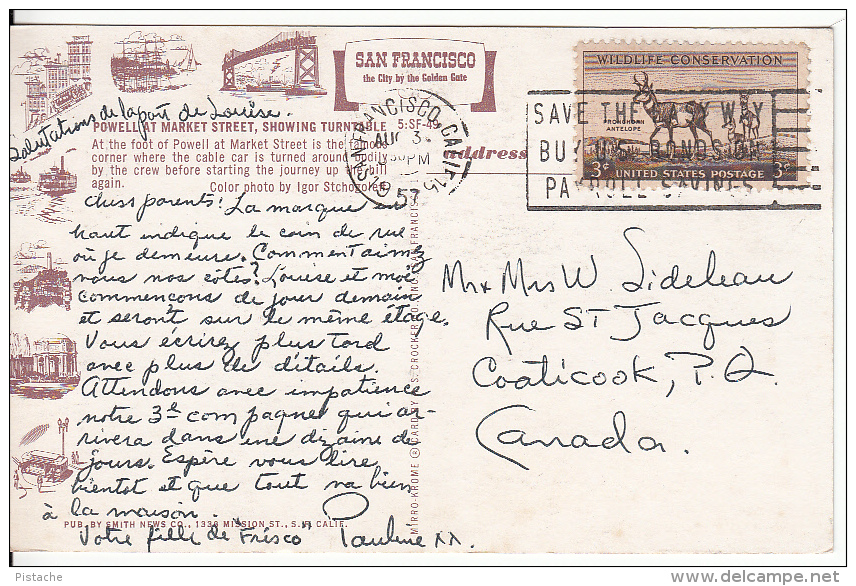 SAN FRANCISCO
the City by the Golden Gate
WILDLIFE CONSERVATION
PRONGHORN
ANTELOPE
3¢ 3¢
UNITED STATES POSTAGE
SAN FRANCISCO, CALIF.
AUG 3
PM
57
SAVE THE EASY WAY
BUY U.S. BONDS ON
PAYROLL SAVINGS
Salutations de la part de Louise.
POWELL AT MARKET STREET, SHOWING TURNTABLE 5:SF-49
At the foot of Powell at Market Street is the famous
corner where the cable car is turned around bodily
by the crew before starting the journey up the hill
again.
Color photo by Igor Stchogolev
address
Chers parents: La marque en
haut indique le coin de rue
où je demeure. Comment aimez
vous nos côtes? Louise et moi
commencons de jour demain
et seront sur le même étage.
Vous écrirez plus tard
avec plus de détails.
Attendons avec impatience
notre 3e compagne qui ar-
rivera dans une dizaine de
jours. Espère vous lire
bientot et que tout va bien
à la maison.
Votre fille de "Frisco" Pauline xx.
PUB. BY SMITH NEWS CO., 1336 MISSION ST., S.F. CALIF.
MIRRO-KROME ® CARD BY H.S. CROCKER CO. INC. SAN FRANCISCO
Mr x Mrs W. Lidebeau
Rue St Jacques
Coaticook, P.Q.
Canada.
Pistache
www.delcampe.net